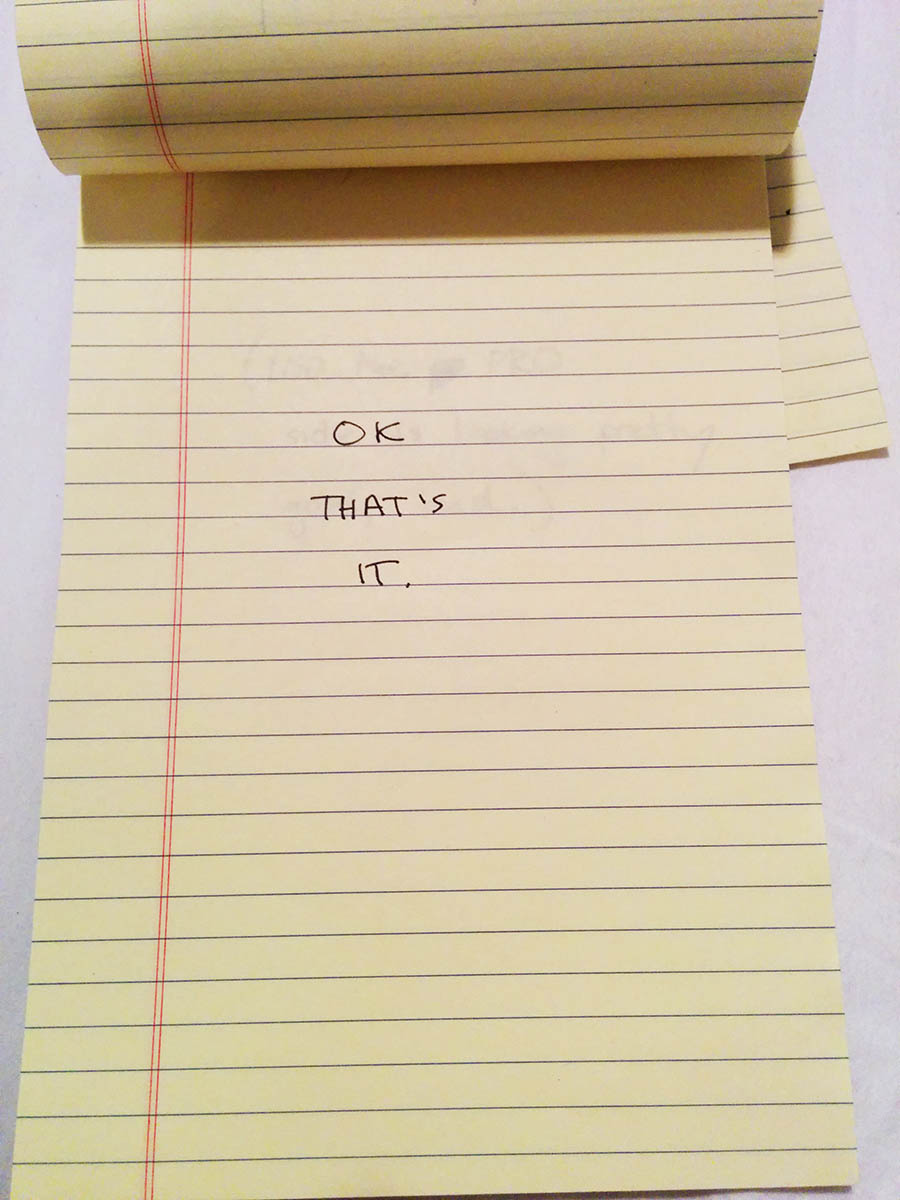 OK
THAT'S
IT.